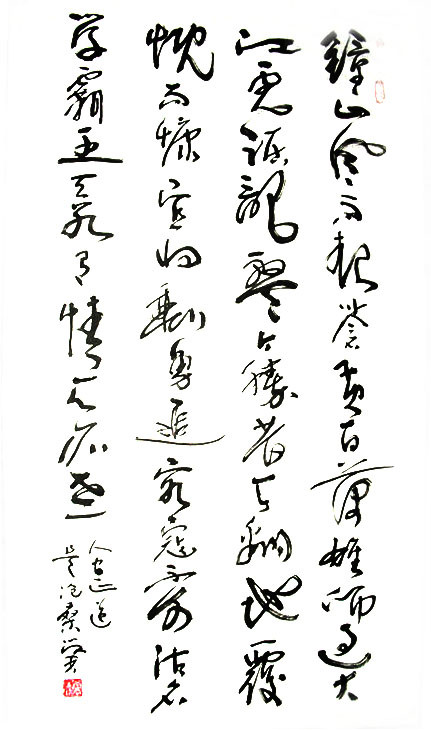 鐘山风雨起苍黄百萬雄师过大
江虎踞龍盤今勝昔天翻地覆
慨而慷宜将剩勇追穷寇不可沽名
学霸王天若有情天亦老
人间正道
是沧桑